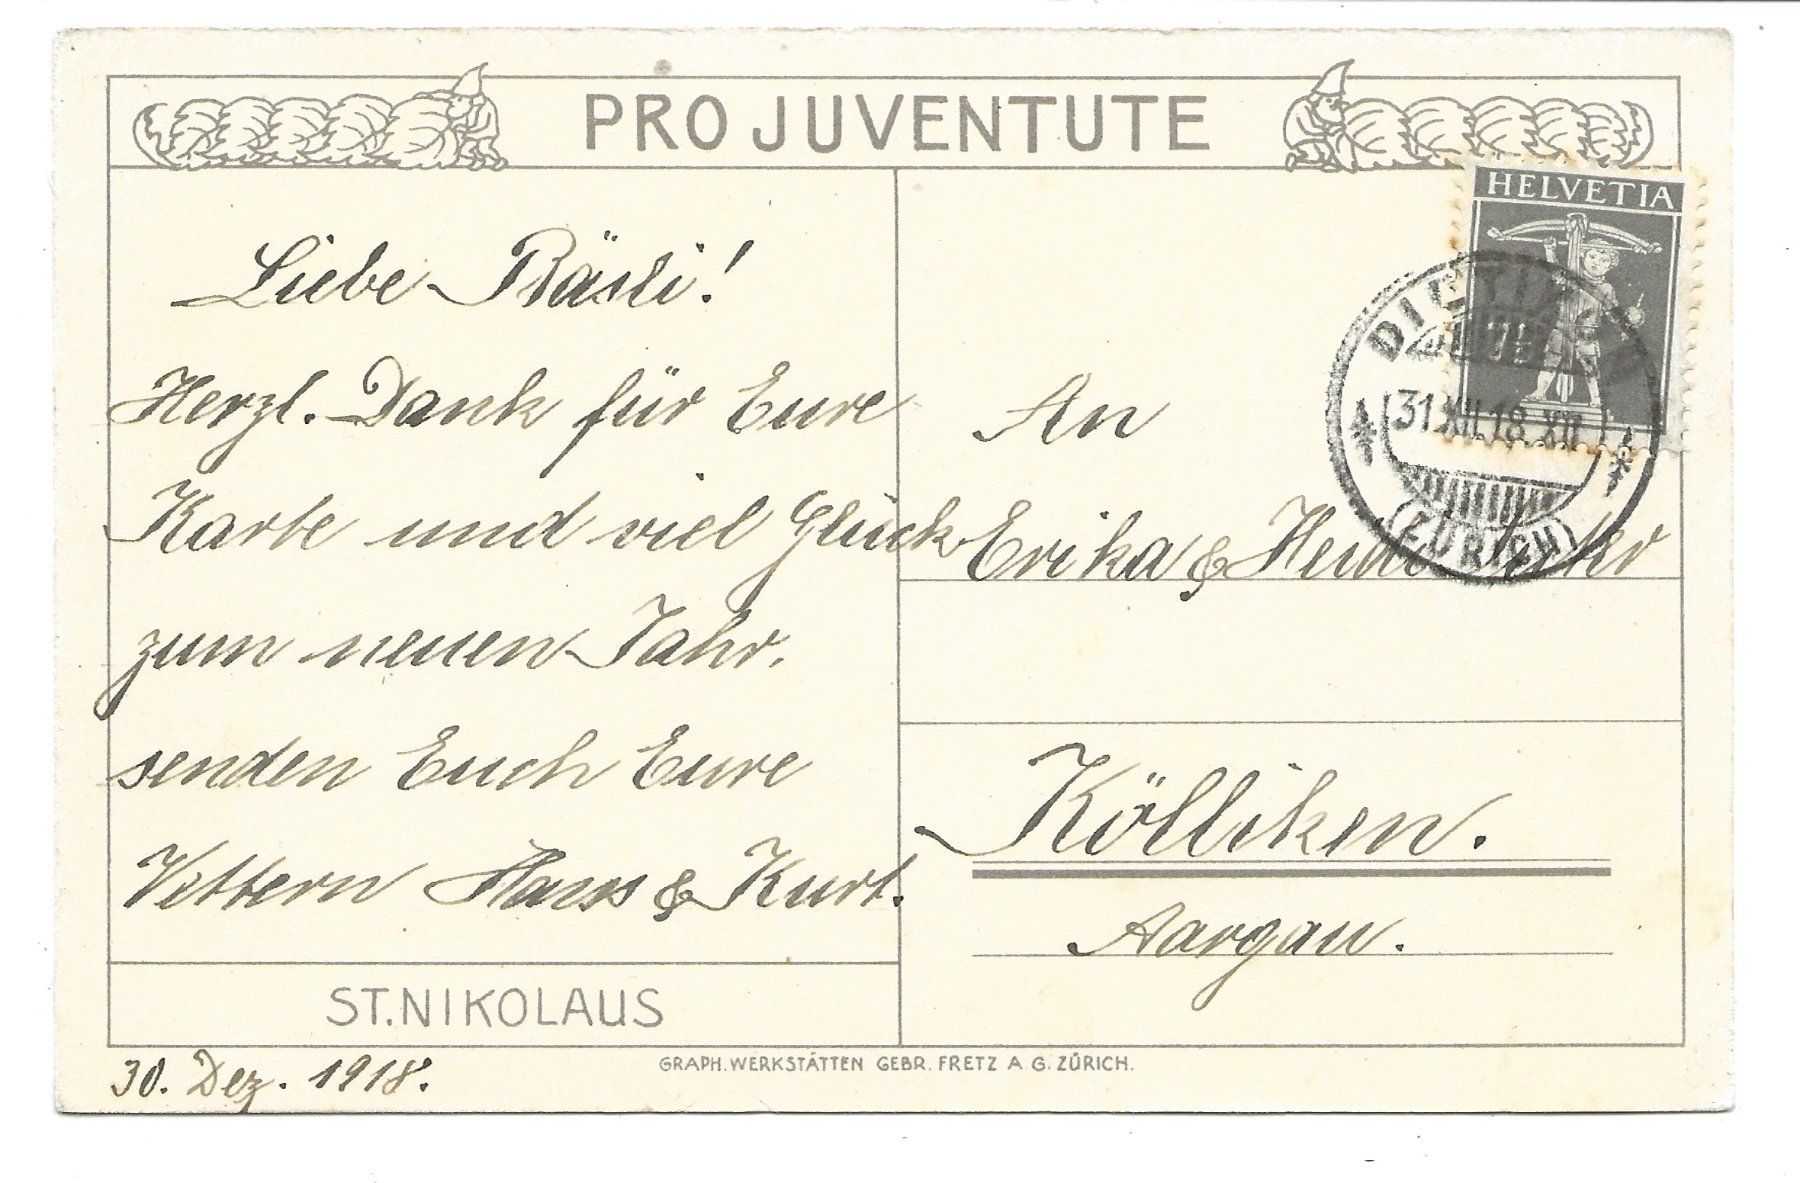 PRO JUVENTUTE
HELVETIA
7½
DIETIKON
31.XII.18.XII
(ZÜRICH)
Liebe Bäsli!
Herzl. Dank für Eure
Karte und viel Glück
zum neuen Jahr.
senden Euch Eure
Vettern Hans & Kurt.
An
Erika & Heidi
Kölliken.
Aargau.
ST. NIKOLAUS
30. Dez. 1918.
GRAPH. WERKSTÄTTEN GEBR. FRETZ A G. ZÜRICH.